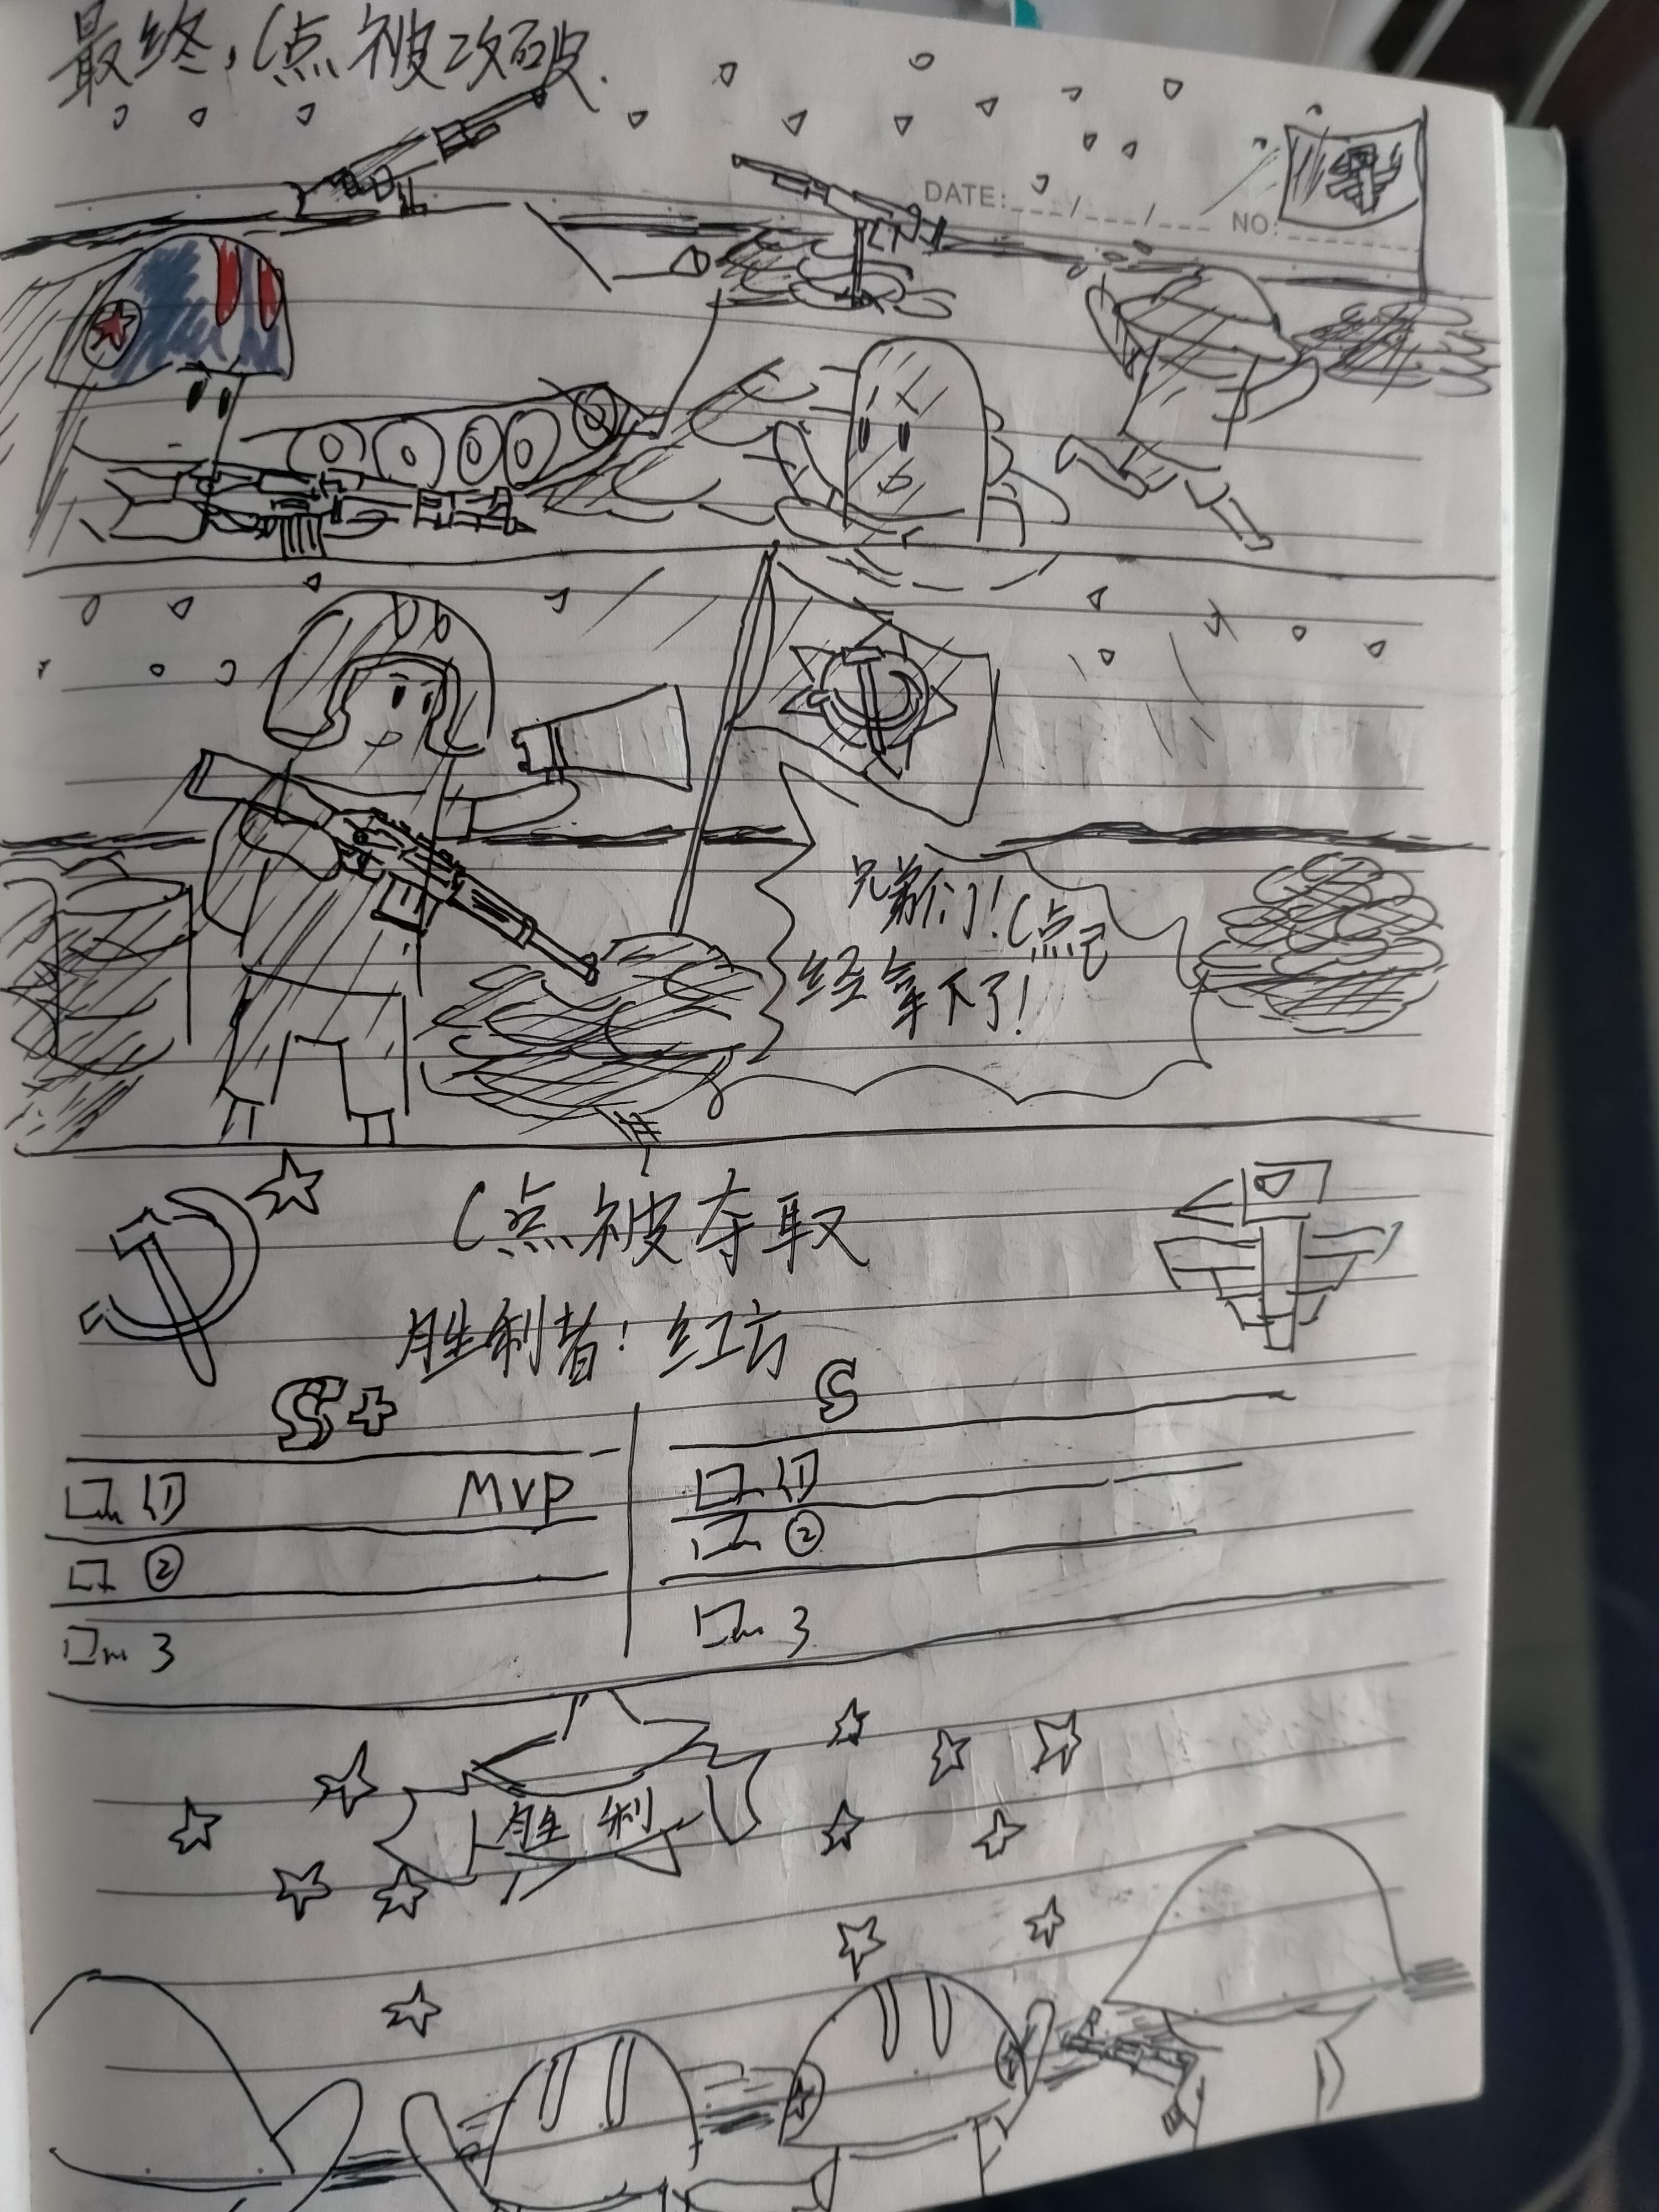 最终，C点被攻破.
DATE: ___/___/___
NO:
兄弟们！C点已
经拿下了！
C点被夺取
胜利者：红方
S+
S
① MVP
②
3
①
②
3
胜利